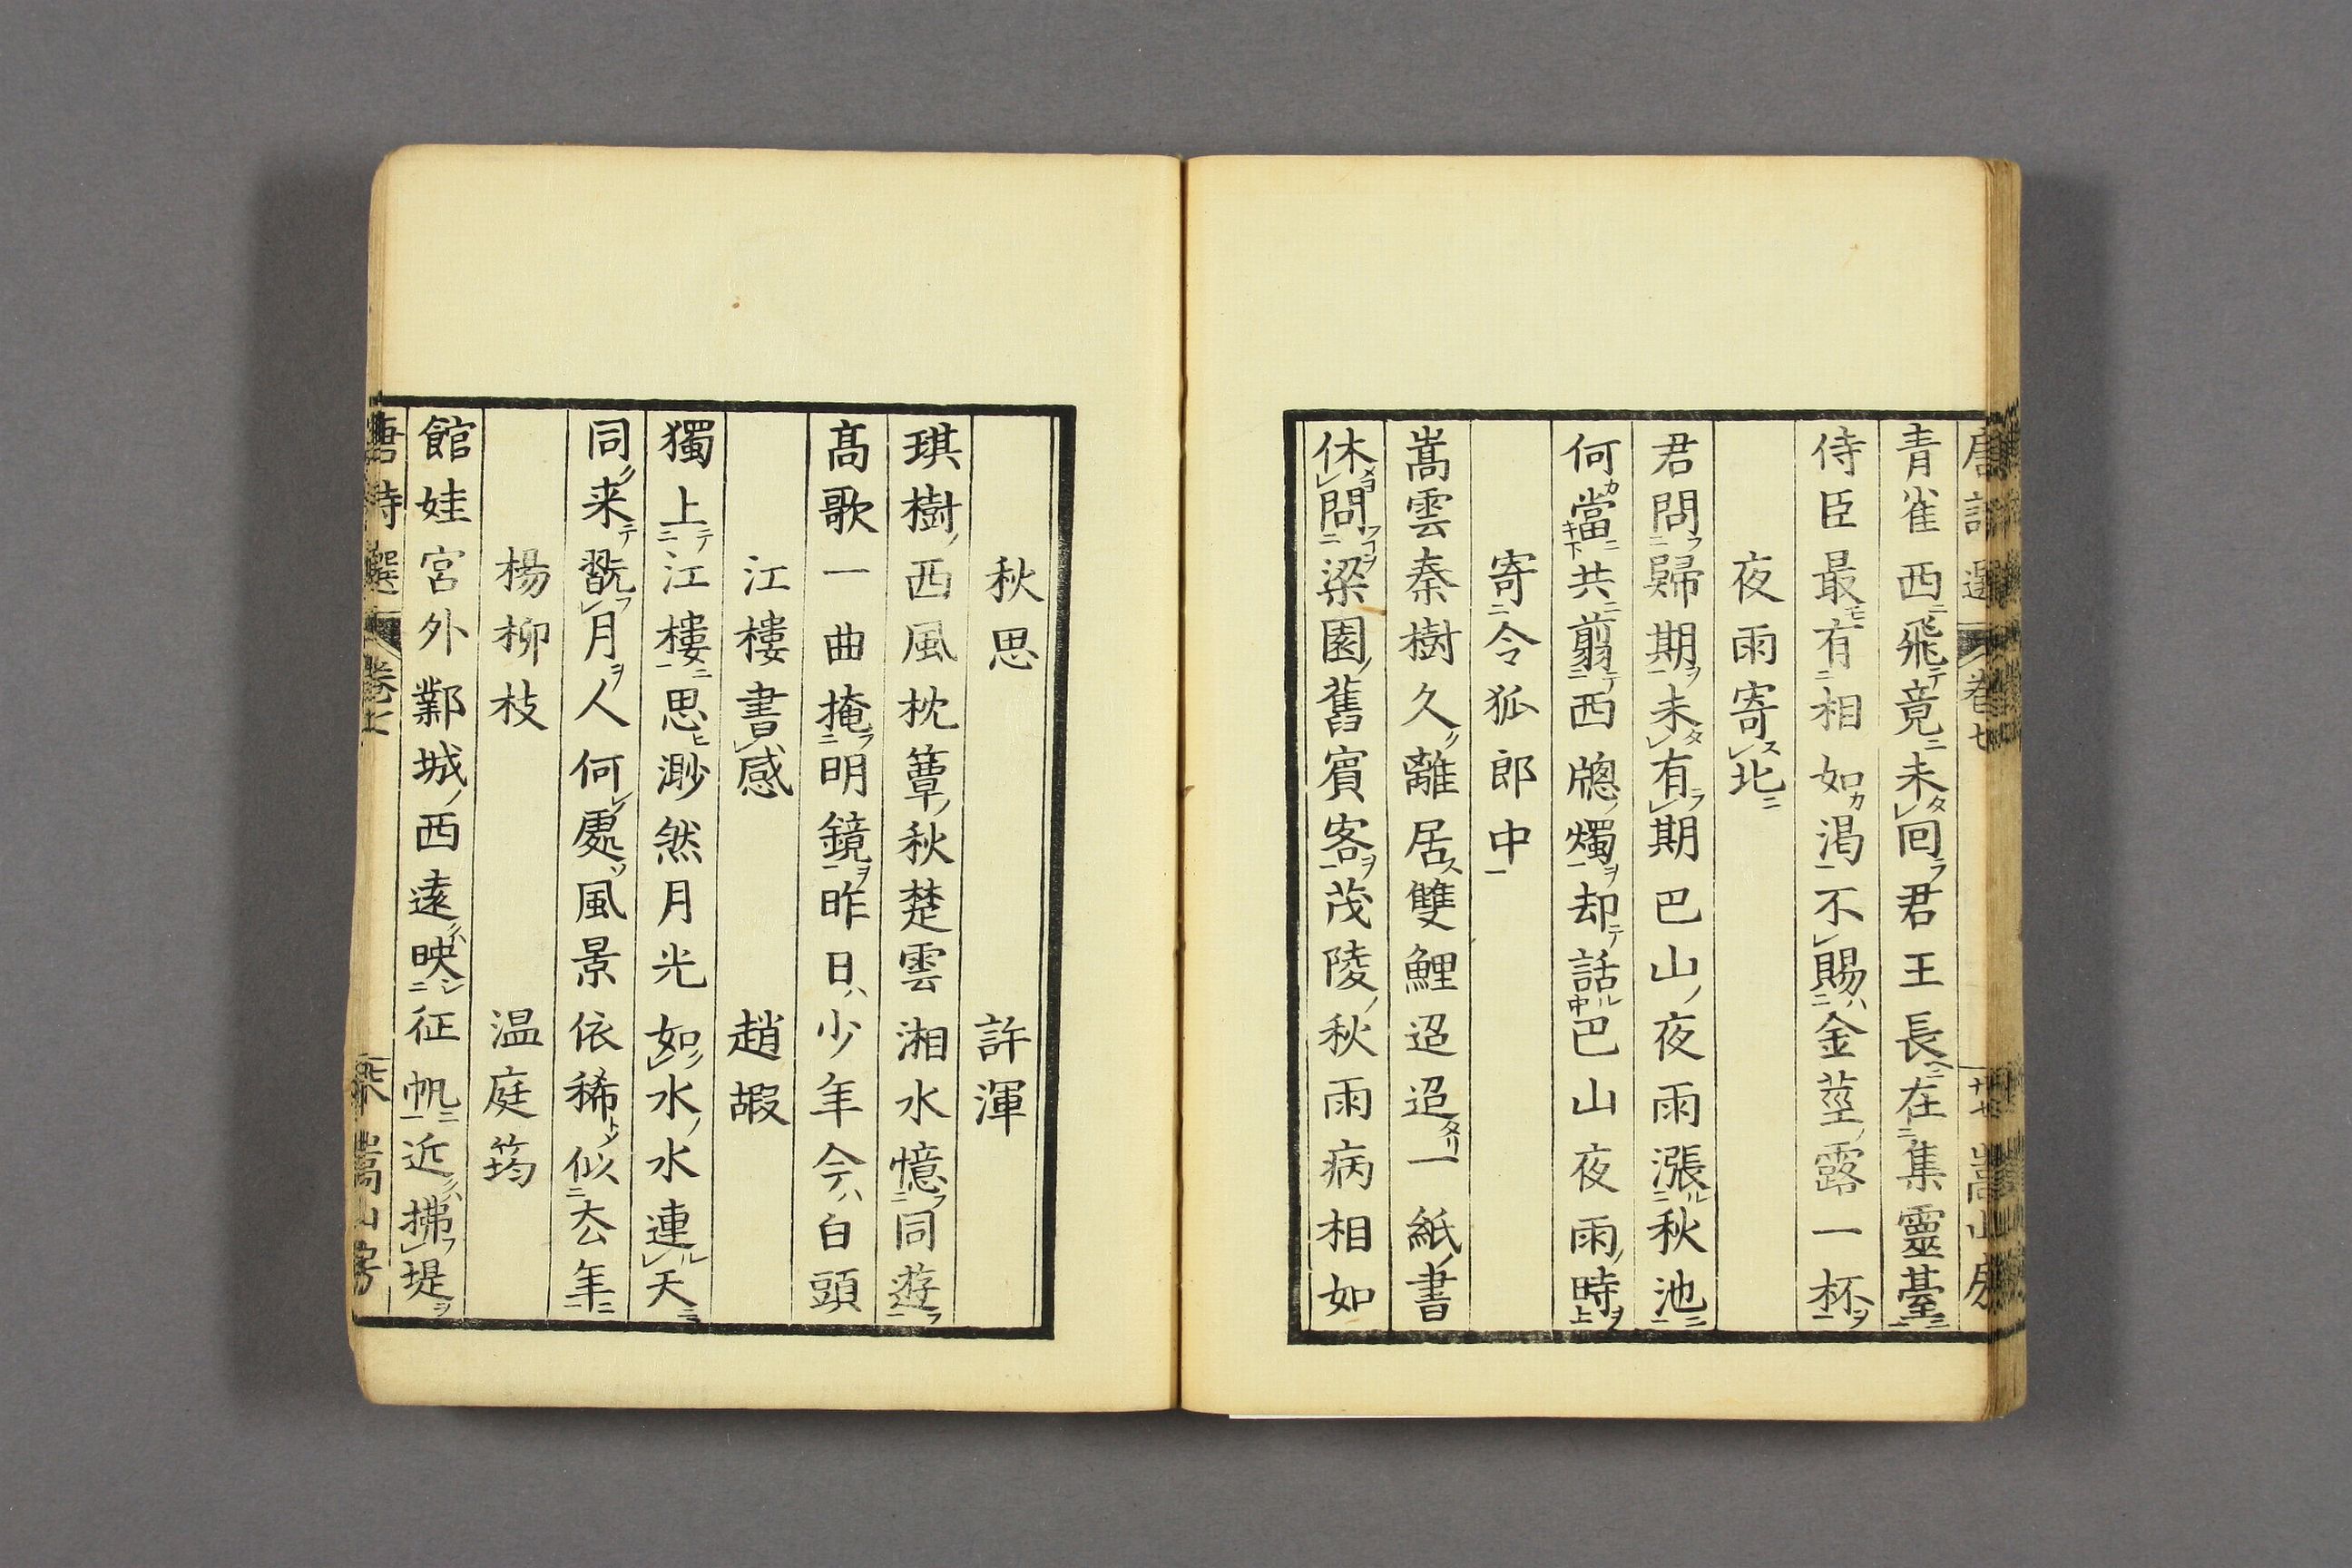 唐詩選 卷七 廿七 嵩山房
青雀西飛竟未回君王長在集靈臺
侍臣最有相如渴不賜金莖露一杯
夜雨寄北
君問歸期未有期巴山夜雨漲秋池
何當共剪西牕燭却話巴山夜雨時
寄令狐郎中
嵩雲秦樹久離居雙鯉迢迢一紙書
休問梁園舊賓客茂陵秋雨病相如
秋思 許渾
琪樹西風枕簟秋楚雲湘水憶同遊
髙歌一曲掩明鏡昨日少年今白頭
江樓書感 趙嘏
獨上江樓思渺然月光如水水連天
同来翫月人何處風景依稀似去年
楊柳枝 温庭筠
館娃宮外鄴城西遠映征帆近拂堤
唐詩選 卷七 嵩山房